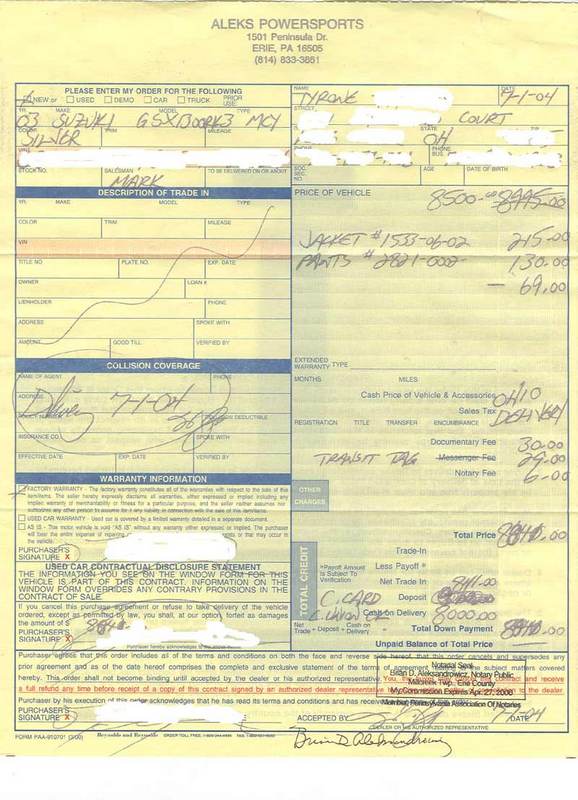 ALEKS POWERSPORTS
1501 Peninsula Dr.
ERIE, PA 16505
(814) 833-3861
PLEASE ENTER MY ORDER FOR THE FOLLOWING
NEW or USED DEMO CAR TRUCK PRIOR USE:
YR. MAKE MODEL TYPE
03 SUZUKI GSX1300RK3 MCY
COLOR TRIM MILEAGE
SILVER
STOCK NO. SALESMAN TO BE DELIVERED ON OR ABOUT
MARK
NAME DATE
TYRONE 7-1-04
STREET
COURT
STATE
OH
PHONE BUS.
SOC. SEC. NO. AGE DATE OF BIRTH
DESCRIPTION OF TRADE IN
YR. MAKE MODEL TYPE
COLOR TRIM MILEAGE
VIN
TITLE NO. PLATE NO. EXP. DATE
OWNER LOAN #
LIENHOLDER PHONE
ADDRESS SPOKE WITH
AMOUNT GOOD TILL VERIFIED BY
PRICE OF VEHICLE 8500.00 8995.00
JACKET #1533-06-02 215.00
PANTS #2821-002 130.00
- 69.00
EXTENDED WARRANTY TYPE
MONTHS MILES
COLLISION COVERAGE
NAME OF AGENT PHONE
ADDRESS
7-1-04
DEDUCTIBLE
INSURANCE CO. SPOKE WITH
EFFECTIVE DATE EXP. DATE VERIFIED BY
Cash Price of Vehicle & Accessories OHIO
Sales Tax DELIVERY
REGISTRATION TITLE TRANSFER ENCUMBRANCE
Documentary Fee 30.00
TRANSIT TAG Messenger Fee 29.00
Notary Fee 6.00
OTHER CHARGES
Total Price 8840.00
WARRANTY INFORMATION
FACTORY WARRANTY - The factory warranty constitutes all of the warranties with respect to the sale of this item/items. The seller hereby expressly disclaims all warranties, either expressed or implied including any implied warranty of merchantability or fitness for a particular purpose, and the seller neither assumes nor authorizes any other person to assume for it any liability in connection with the sale of this item/items.
USED CAR WARRANTY - Used car is covered by a limited warranty detailed in a separate document.
AS IS - This motor vehicle is sold "AS IS" without any warranty either expressed or implied. The purchaser will bear the entire expense of repairing or that may occur in the vehicle.
PURCHASER'S SIGNATURE X
USED CAR CONTRACTUAL DISCLOSURE STATEMENT
THE INFORMATION YOU SEE ON THE WINDOW FORM FOR THIS VEHICLE IS PART OF THIS CONTRACT. INFORMATION ON THE WINDOW FORM OVERRIDES ANY CONTRARY PROVISIONS IN THE CONTRACT OF SALE.
If you cancel this purchase agreement or refuse to take delivery of the vehicle ordered, except as permitted by law, you shall, at our option, forfeit as damages the amount of $
PURCHASER'S SIGNATURE X
TOTAL CREDIT
Trade-In
*Payoff Amount is Subject To Verification Less Payoff *
Net Trade In 841.00
C. CARD Deposit
C. UNION CK Cash on Delivery 8000.00
Net Trade + Deposit + Cash on Delivery Total Down Payment 8840.00
Unpaid Balance of Total Price
Purchaser agrees that this order includes all of the terms and conditions on both the face and reverse side hereof, that this order cancels and supersedes any
prior agreement and as of the date hereof comprises the complete and exclusive statement of the terms of agreement subject matters covered
hereby. This order shall not become binding until accepted by the dealer or his authorized representative. You, and receive
a full refund any time before receipt of a copy of this contract signed by an authorized dealer representative to the dealer
Notarial Seal
Brian D. Aleksandrowicz, Notary Public
Millcreek Twp., Erie County
My Commission Expires Apr. 27, 2008
Member, Pennsylvania Association Of Notaries
Purchaser by his execution of this order acknowledges that he has read its terms and conditions and has received
PURCHASER'S SIGNATURE X ACCEPTED BY 7-1-04 DATE
DEALER OR HIS AUTHORIZED REPRESENTATIVE
Reynolds and Reynolds
Brian D Aleksandrowicz